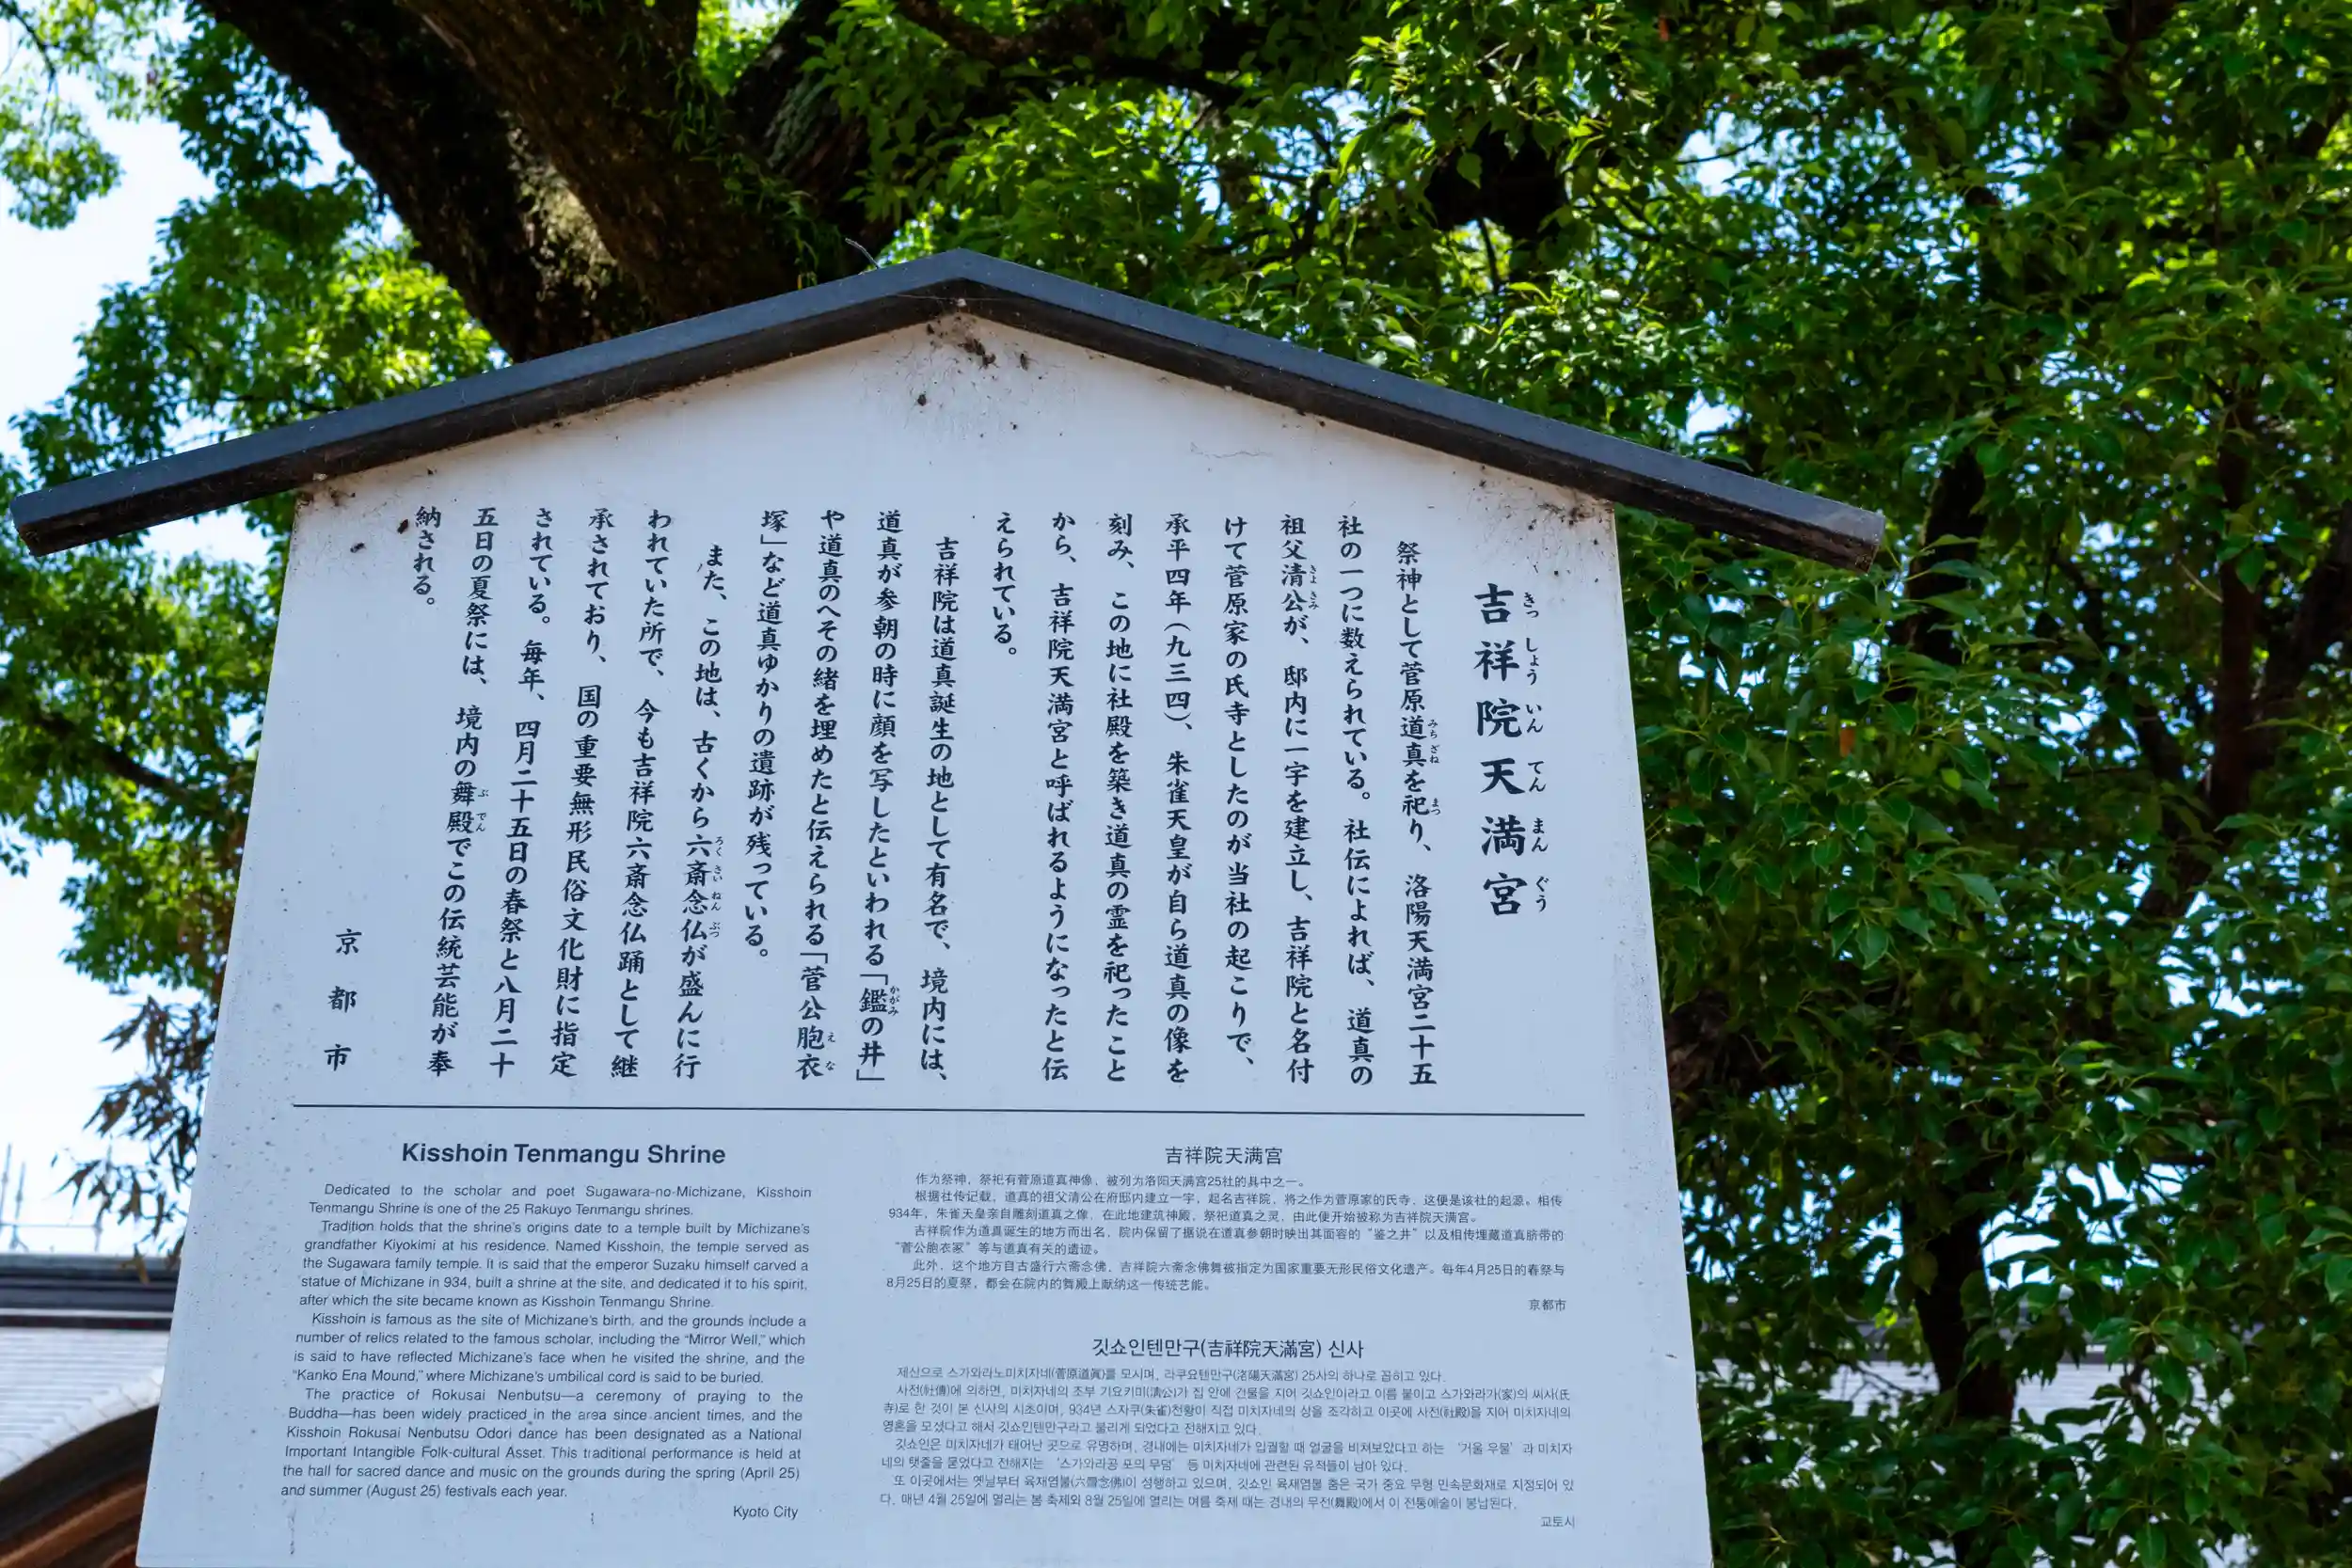 吉祥院天満宮
きっしょういんてんまんぐう
祭神として菅原道真を祀り、洛陽天満宮二十五
みちざね
まつ
社の一つに数えられている。社伝によれば、道真の
祖父清公が、邸内に一宇を建立し、吉祥院と名付
きよきみ
けて菅原家の氏寺としたのが当社の起こりで、
承平四年(九三四)、朱雀天皇が自ら道真の像を
刻み、この地に社殿を築き道真の霊を祀ったこと
から、吉祥院天満宮と呼ばれるようになったと伝
えられている。
吉祥院は道真誕生の地として有名で、境内には、
道真が参朝の時に顔を写したといわれる「鑑の井」
かがみ
や道真のへその緒を埋めたと伝えられる「菅公胞衣
えな
塚」など道真ゆかりの遺跡が残っている。
また、この地は、古くから六斎念仏が盛んに行
ろくさいねんぶつ
われていた所で、今も吉祥院六斎念仏踊として継
承されており、国の重要無形民俗文化財に指定
されている。毎年、四月二十五日の春祭と八月二十
五日の夏祭には、境内の舞殿でこの伝統芸能が奉
ぶでん
納される。
京都市
Kisshoin Tenmangu Shrine
Dedicated to the scholar and poet Sugawara-no-Michizane, Kisshoin
Tenmangu Shrine is one of the 25 Rakuyo Tenmangu shrines.
Tradition holds that the shrine's origins date to a temple built by Michizane's
grandfather Kiyokimi at his residence. Named Kisshoin, the temple served as
the Sugawara family temple. It is said that the emperor Suzaku himself carved a
statue of Michizane in 934, built a shrine at the site, and dedicated it to his spirit,
after which the site became known as Kisshoin Tenmangu Shrine.
Kisshoin is famous as the site of Michizane's birth, and the grounds include a
number of relics related to the famous scholar, including the "Mirror Well," which
is said to have reflected Michizane's face when he visited the shrine, and the
"Kanko Ena Mound," where Michizane's umbilical cord is said to be buried.
The practice of Rokusai Nenbutsu—a ceremony of praying to the
Buddha—has been widely practiced in the area since ancient times, and the
Kisshoin Rokusai Nenbutsu Odori dance has been designated as a National
Important Intangible Folk-cultural Asset. This traditional performance is held at
the hall for sacred dance and music on the grounds during the spring (April 25)
and summer (August 25) festivals each year.
Kyoto City
吉祥院天满宫
作为祭神，祭祀有菅原道真神像，被列为洛阳天满宫25社的其中之一。
根据社传记载，道真的祖父清公在府邸内建立一宇，起名吉祥院，将之作为菅原家的氏寺，这便是该社的起源。相传
934年，朱雀天皇亲自雕刻道真之像，在此地建筑神殿，祭祀道真之灵，由此便开始被称为吉祥院天满宫。
吉祥院作为道真诞生的地方而出名，院内保留了据说在道真参朝时映出其面容的“鉴之井”以及相传埋藏道真脐带的
“菅公胞衣冢”等与道真有关的遗迹。
此外，这个地方自古盛行六斋念佛，吉祥院六斋念佛舞被指定为国家重要无形民俗文化遗产。每年4月25日的春祭与
8月25日的夏祭，都会在院内的舞殿上献纳这一传统艺能。
京都市
깃쇼인텐만구(吉祥院天滿宮) 신사
제신으로 스가와라노미치자네(菅原道眞)를 모시며, 라쿠요텐만구(洛陽天滿宮) 25사의 하나로 꼽히고 있다.
사전(社傳)에 의하면, 미치자네의 조부 기요키미(淸公)가 집 안에 건물을 지어 깃쇼인이라고 이름 붙이고 스가와라가(家)의 씨사(氏
寺)로 한 것이 본 신사의 시초이며, 934년 스자쿠(朱雀)천황이 직접 미치자네의 상을 조각하고 이곳에 사전(社殿)을 지어 미치자네의
영혼을 모셨다고 해서 깃쇼인텐만구라고 불리게 되었다고 전해지고 있다.
깃쇼인은 미치자네가 태어난 곳으로 유명하며, 경내에는 미치자네가 입궐할 때 얼굴을 비쳐보았다고 하는 ‘거울 우물’과 미치자
네의 탯줄을 묻었다고 전해지는 ‘스가와라공 포의 무덤’ 등 미치자네에 관련된 유적들이 남아 있다.
또 이곳에서는 옛날부터 육재염불(六齋念佛)이 성행하고 있으며, 깃쇼인 육재염불 춤은 국가 중요 무형 민속문화재로 지정되어 있
다. 매년 4월 25일에 열리는 봄 축제와 8월 25일에 열리는 여름 축제 때는 경내의 무전(舞殿)에서 이 전통예술이 봉납된다.
교토시